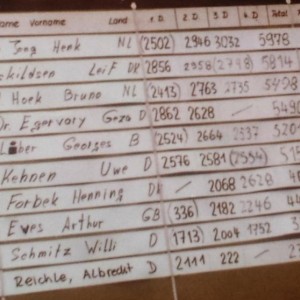 Name Vorname Land 1. D 2. D 3. D Total
Jong Henk NL (2502) 2946 3032 5978
Leif DK 2856 2958 (2798) 5814
Hoek Bruno NL (2413) 2763 2735 5498
Dr. Egervary Geza D 2862 2628
Löber Georges B (2524) 2664 2537 520
Kehnen Uwe D 2576 2581 (2554) 515
Farbek Henning DK / 2068 2628
Eves Arthur GB (336) 2182 2246 44
Schmitz Willi D (1713) 2004 1752
Reichle, Albrecht D 2111 222 /